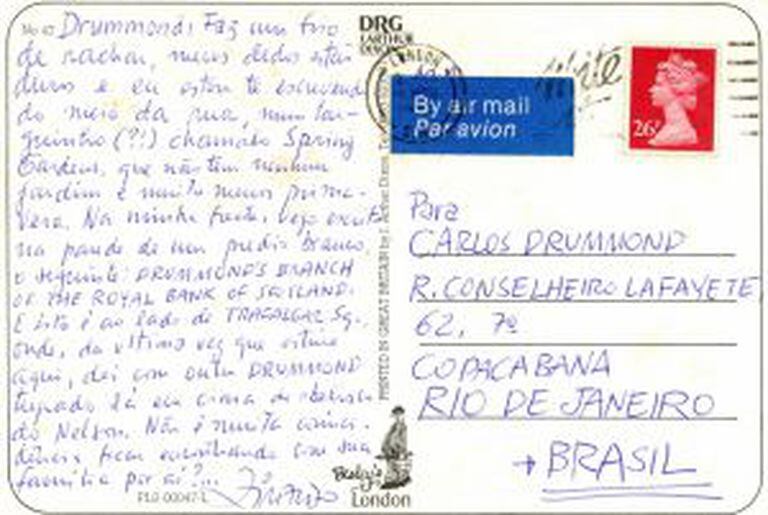 Drummond: Faz um frio
de rachar, meus dedos estão
duros e eu estou te escrevendo
do meio da rua, num lar-
guinho (?!) chamado Spring
Gardens, que não tem nenhum
jardim e muito menos prima-
vera. Na minha frente, vejo escrito
na parede de um prédio branco,
o seguinte: DRUMMOND'S BRANCH
OF THE ROYAL BANK OF SCOTLAND.
E isto é ao lado de TRAFALGAR Sq.,
onde, da última vez que estive
aqui, dei com outro DRUMMOND
trepado lá em cima da
do Nelson. Não é muita coinci-
dência ficar encontrando com sua
família por aí?...
PLG 00047-L
DRG
PRINTED IN GREAT BRITAIN by
London
LONDON
By air mail
Par avion
26P
Para
CARLOS DRUMMOND
R. CONSELHEIRO LAFAYETE
62, 7º
COPACABANA
RIO DE JANEIRO
→ BRASIL